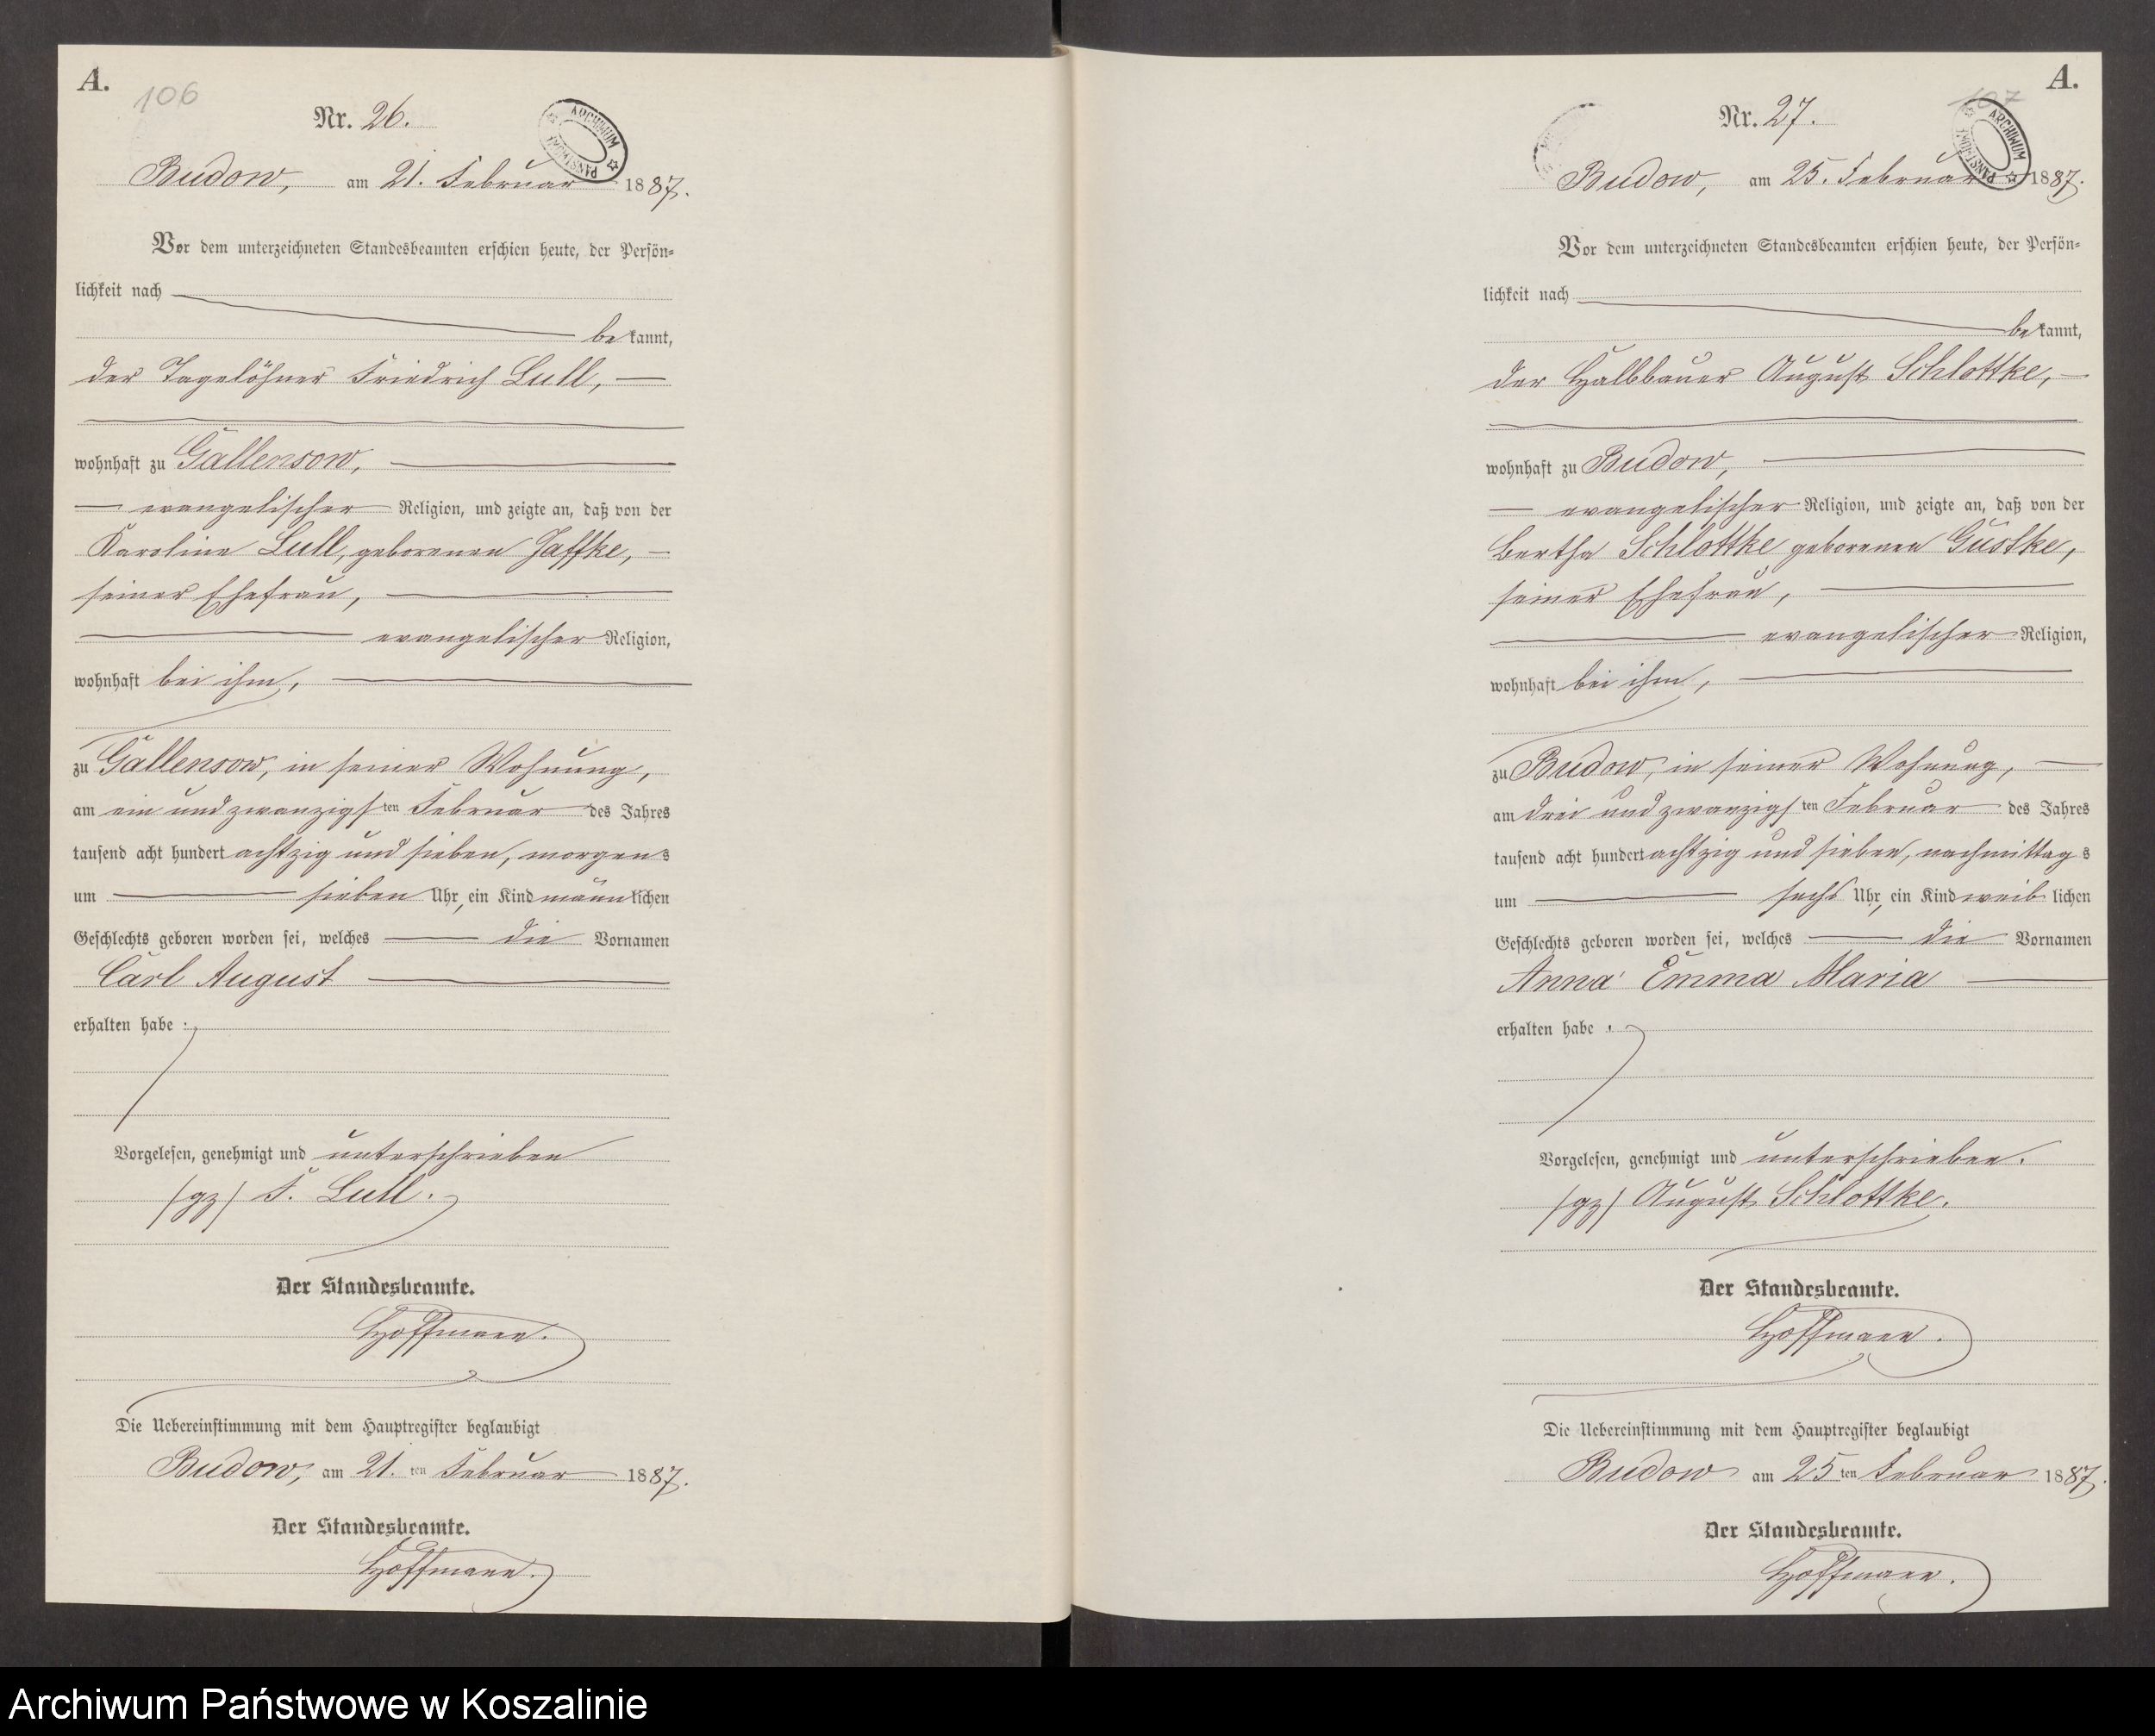 A.
106
Nr. 26.
ARCHIWUM PAŃSTWOWE
Budow, am 21. Februar 1887.
Vor dem unterzeichneten Standesbeamten erschien heute, der Persön-
lichkeit nach
bekannt,
der Tagelöhner Friedrich Lull,
wohnhaft zu Gallensow,
evangelischer Religion, und zeigte an, daß von der
Karoline Lull, geborenen Jaffke,
seiner Ehefrau,
evangelischer Religion,
wohnhaft bei ihm,
zu Gallensow, in seiner Wohnung,
am ein und zwanzigsten Februar des Jahres
tausend acht hundert achtzig und sieben, morgens
um sieben Uhr, ein Kind männlichen
Geschlechts geboren worden sei, welches die Vornamen
Carl August
erhalten habe.
Vorgelesen, genehmigt und unterschrieben
/gz/ F. Lull.
Der Standesbeamte.
Hoffmann.
Die Uebereinstimmung mit dem Hauptregister beglaubigt
Budow, am 21. ten Februar 1887.
Der Standesbeamte.
Hoffmann.
A.
107
Nr. 27.
ARCHIWUM PAŃSTWOWE
Budow, am 25. Februar 1887.
Vor dem unterzeichneten Standesbeamten erschien heute, der Persön-
lichkeit nach
bekannt,
der Halbbauer August Schlottke,
wohnhaft zu Budow,
evangelischer Religion, und zeigte an, daß von der
Bertha Schlottke geborenen Gustke,
seiner Ehefrau,
evangelischer Religion,
wohnhaft bei ihm,
zu Budow, in seiner Wohnung,
am drei und zwanzigsten Februar des Jahres
tausend acht hundert achtzig und sieben, nachmittags
um sechs Uhr, ein Kind weiblichen
Geschlechts geboren worden sei, welches die Vornamen
Anna Emma Maria
erhalten habe.
Vorgelesen, genehmigt und unterschrieben.
/gz/ August Schlottke.
Der Standesbeamte.
Hoffmann.
Die Uebereinstimmung mit dem Hauptregister beglaubigt
Budow am 25 ten Februar 1887.
Der Standesbeamte.
Hoffmann.
Archiwum Państwowe w Koszalinie